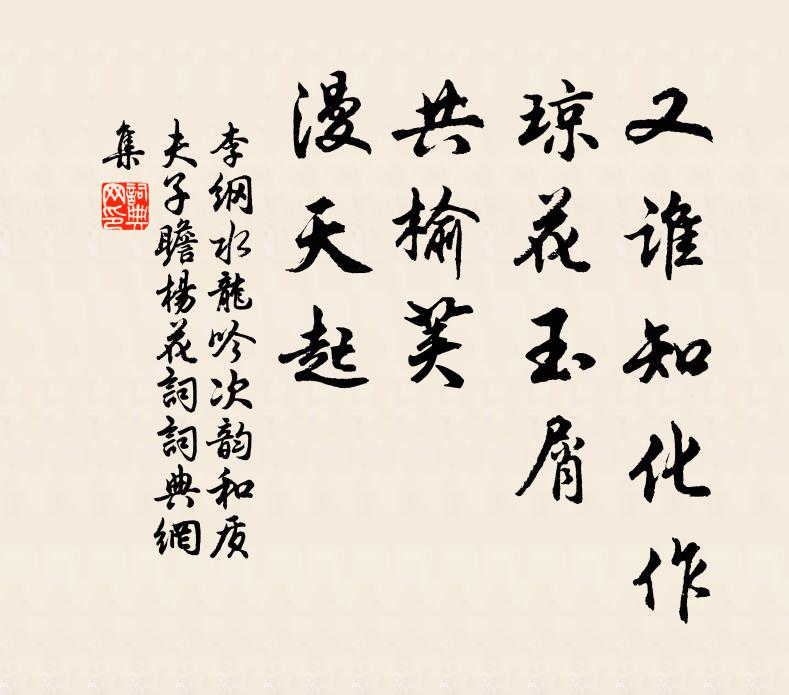 又谁知化作
琼花玉屑
共榆荚
漫天起
李纲水龍吟次韵和质
夫子瞻楊花詞詞典網
集
詞典
网印